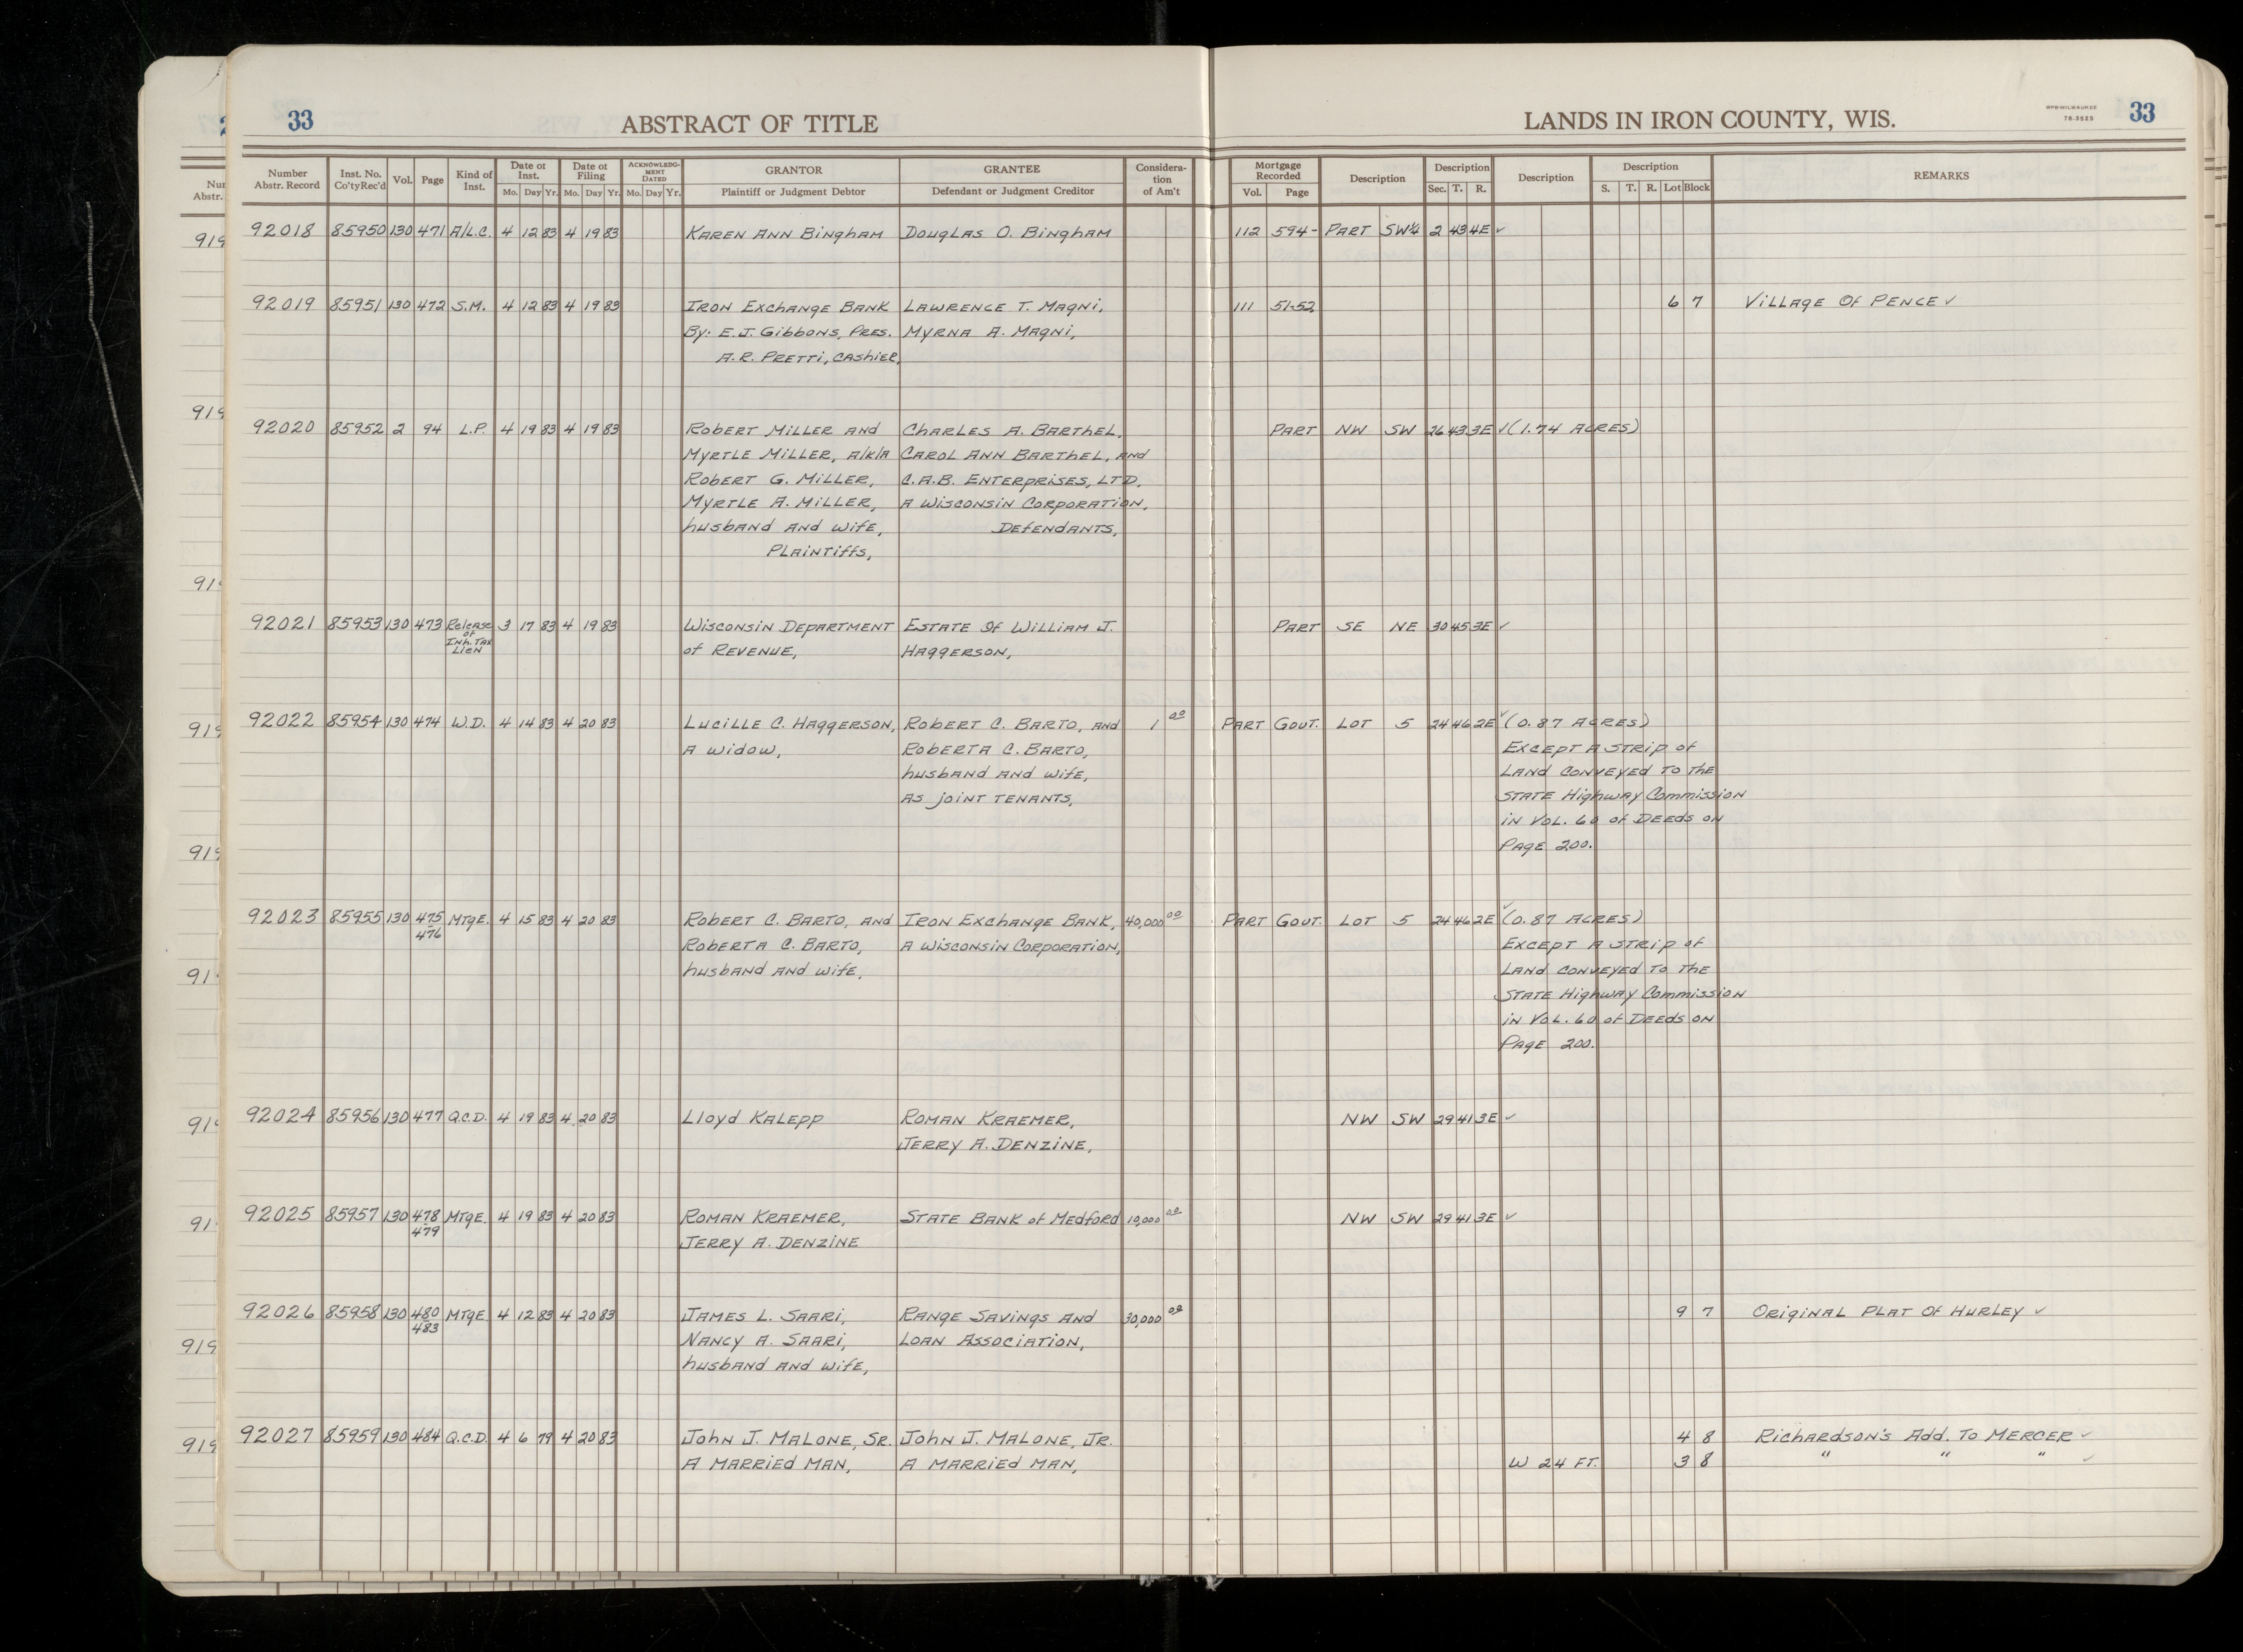 33
ABSTRACT OF TITLE
LANDS IN IRON COUNTY, WIS.
WPB-MILWAUKEE
78-3525
33
Number
Abstr. Record
Inst. No.
Co'ty Rec'd
Vol.
Page
Kind of
Inst.
Date of
Inst.
Mo. Day Yr.
Date of
Filing
Mo. Day Yr.
ACKNOWLEDG-
MENT
DATED
Mo. Day Yr.
GRANTOR
Plaintiff or Judgment Debtor
GRANTEE
Defendant or Judgment Creditor
Considera-
tion
of Am't
Mortgage
Recorded
Vol. Page
Description
Description
Sec. T. R.
Description
Description
S. T. R. Lot Block
REMARKS
92018 85950 130 471 A/L.C. 4 12 83 4 19 83 Karen Ann Bingham Douglas O. Bingham 112 594- Part SW¼ 2 43 4E ✓
92019 85951 130 472 S.M. 4 12 83 4 19 83 Iron Exchange Bank Lawrence T. Magni, 111 51-52, 6 7 Village Of Pence ✓
By: E.J. Gibbons, Pres. Myrna A. Magni,
A.R. Pretti, Cashier,
92020 85952 2 94 L.P. 4 19 83 4 19 83 Robert Miller and Charles A. Barthel, Part NW SW 26 43 3E ✓ (1.74 Acres)
Myrtle Miller, a/k/a Carol Ann Barthel, and
Robert G. Miller, C.A.B. Enterprises, LTD.
Myrtle A. Miller, A Wisconsin Corporation,
husband and wife, Defendants,
Plaintiffs,
92021 85953 130 473 Release 3 17 83 4 19 83 Wisconsin Department Estate Of William J. Part SE NE 30 45 3E ✓
of
Inh. Tax
Lien
of Revenue, Haggerson,
92022 85954 130 474 W.D. 4 14 83 4 20 83 Lucille C. Haggerson, Robert C. Barto, and 1 00 Part Gout. Lot 5 24 46 2E ✓ (0.87 Acres)
A widow, Roberta C. Barto, Except A Strip of
husband and wife, Land conveyed to the
As joint tenants, State Highway Commission
in Vol. 60 of Deeds on
Page 200.
92023 85955 130 475 Mtge. 4 15 83 4 20 83 Robert C. Barto, and Iron Exchange Bank, 40,000 00 Part Gout. Lot 5 24 46 2E ✓ (0.87 Acres)
476 Roberta C. Barto, A Wisconsin Corporation, Except A Strip of
husband and wife, Land conveyed to the
State Highway Commission
in Vol. 60 of Deeds on
Page 200.
92024 85956 130 477 Q.C.D. 4 19 83 4 20 83 Lloyd Kalepp Roman Kraemer, NW SW 29 41 3E ✓
Jerry A. Denzine,
92025 85957 130 478 Mtge. 4 19 83 4 20 83 Roman Kraemer, State Bank of Medford 10,000 00 NW SW 29 41 3E ✓
479 Jerry A. Denzine
92026 85958 130 480 Mtge 4 12 83 4 20 83 James L. Saari, Range Savings And 30,000 00 9 7 Original Plat Of Hurley ✓
483 Nancy A. Saari, Loan Association,
husband and wife,
92027 85959 130 484 Q.C.D. 4 6 79 4 20 83 John J. Malone, Sr. John J. Malone, Jr. 4 8 Richardson's Add. To Mercer ✓
A married man, A married man, W 24 Ft. 3 8 " " " ✓